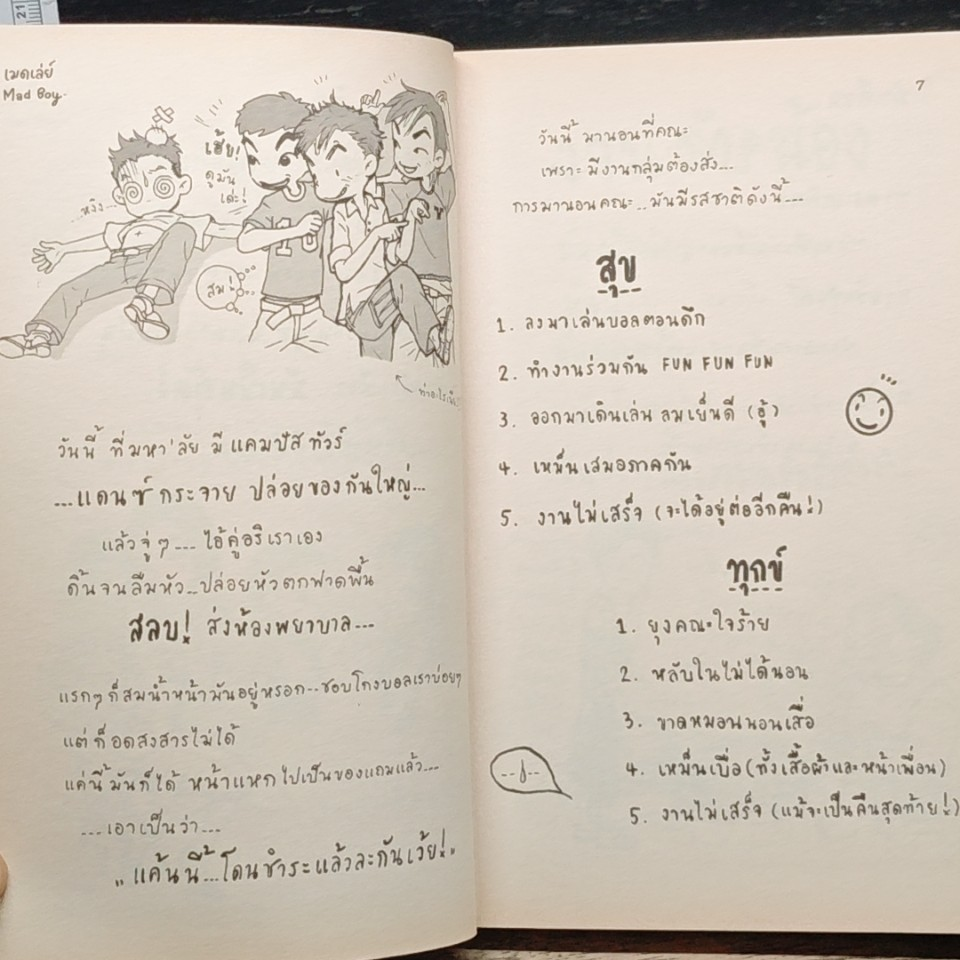 21
เมดเล่ย์
Mad Boy..
เฮ้ย!
ดูมัน
เด่ะ!
...หงิง...
สม!
วันนี้ ที่มหา'ลัย มี แคมปัส ทัวร์
...แดนซ์ กระจาย ปล่อยของกันใหญ่...
แล้วจู่ๆ.... ไอ้คู่อริเราเอง
ดิ้นจนลืมหัว...ปล่อยหัวตกฟาดพื้น
สลบ! ส่งห้องพยาบาล...
แรกๆก็สมน้ำหน้ามันอยู่หรอก...ชอบโกงบอลเราบ่อยๆ
แต่ก็อดสงสารไม่ได้
แค่นี้มันก็ได้ หน้าแหกไปเป็นของแถมแล้ว....
...เอาเป็นว่า...
"แค้นนี้...โดนชำระแล้วละกันเว้ย!"
7
วันนี้ มานอนที่คณะ
เพราะมีงานกลุ่มต้องส่ง...
การมานอนคณะ...มันมีรสชาติดังนี้...
สุข
1. ลงมาเล่นบอลตอนดึก
2. ทำงานร่วมกัน FUN FUN FUN
3. ออกมาเดินเล่น ลมเย็นดี (ฮู้)
4. เหม็นเสมอภาคกัน
5. งานไม่เสร็จ (จะได้อยู่ต่ออีกคืน!)
ทุกข์
1. ยุงคณะใจร้าย
2. หลับในไม่ได้นอน
3. ขาดหมอนนอนเสื่อ
4. เหม็นเบื่อ (ทั้งเสื้อผ้าและหน้าเพื่อน)
5. งานไม่เสร็จ (แม้จะเป็นคืนสุดท้าย!)